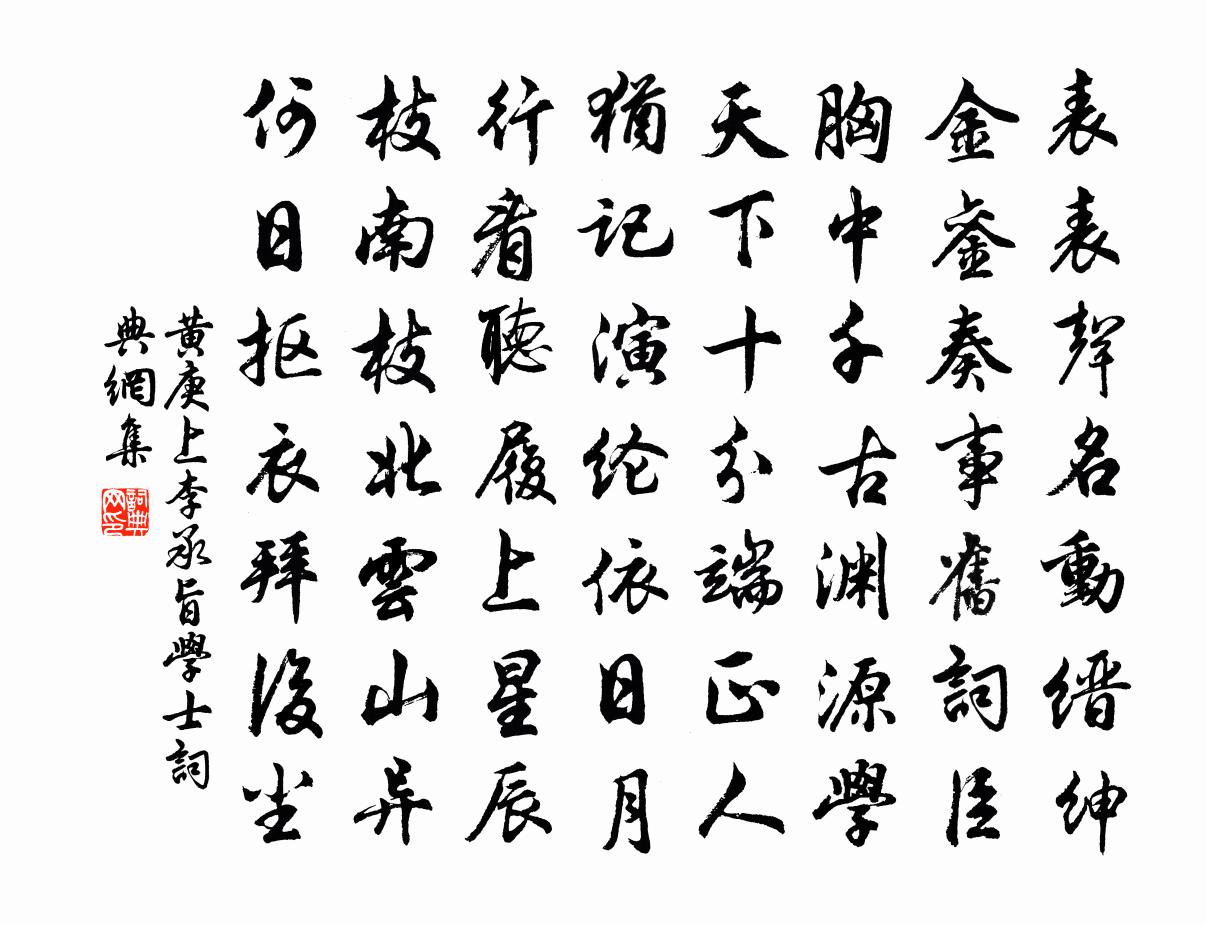 表表聲名動縉紳
金銮奏事舊詞臣
胸中千古渊源學
天下十分端正人
猶記演纶依日月
行看聽履上星辰
枝南枝北雲山异
何日抠衣拜後尘
黃庚上李承旨學士詞
典網集
詞典
网印